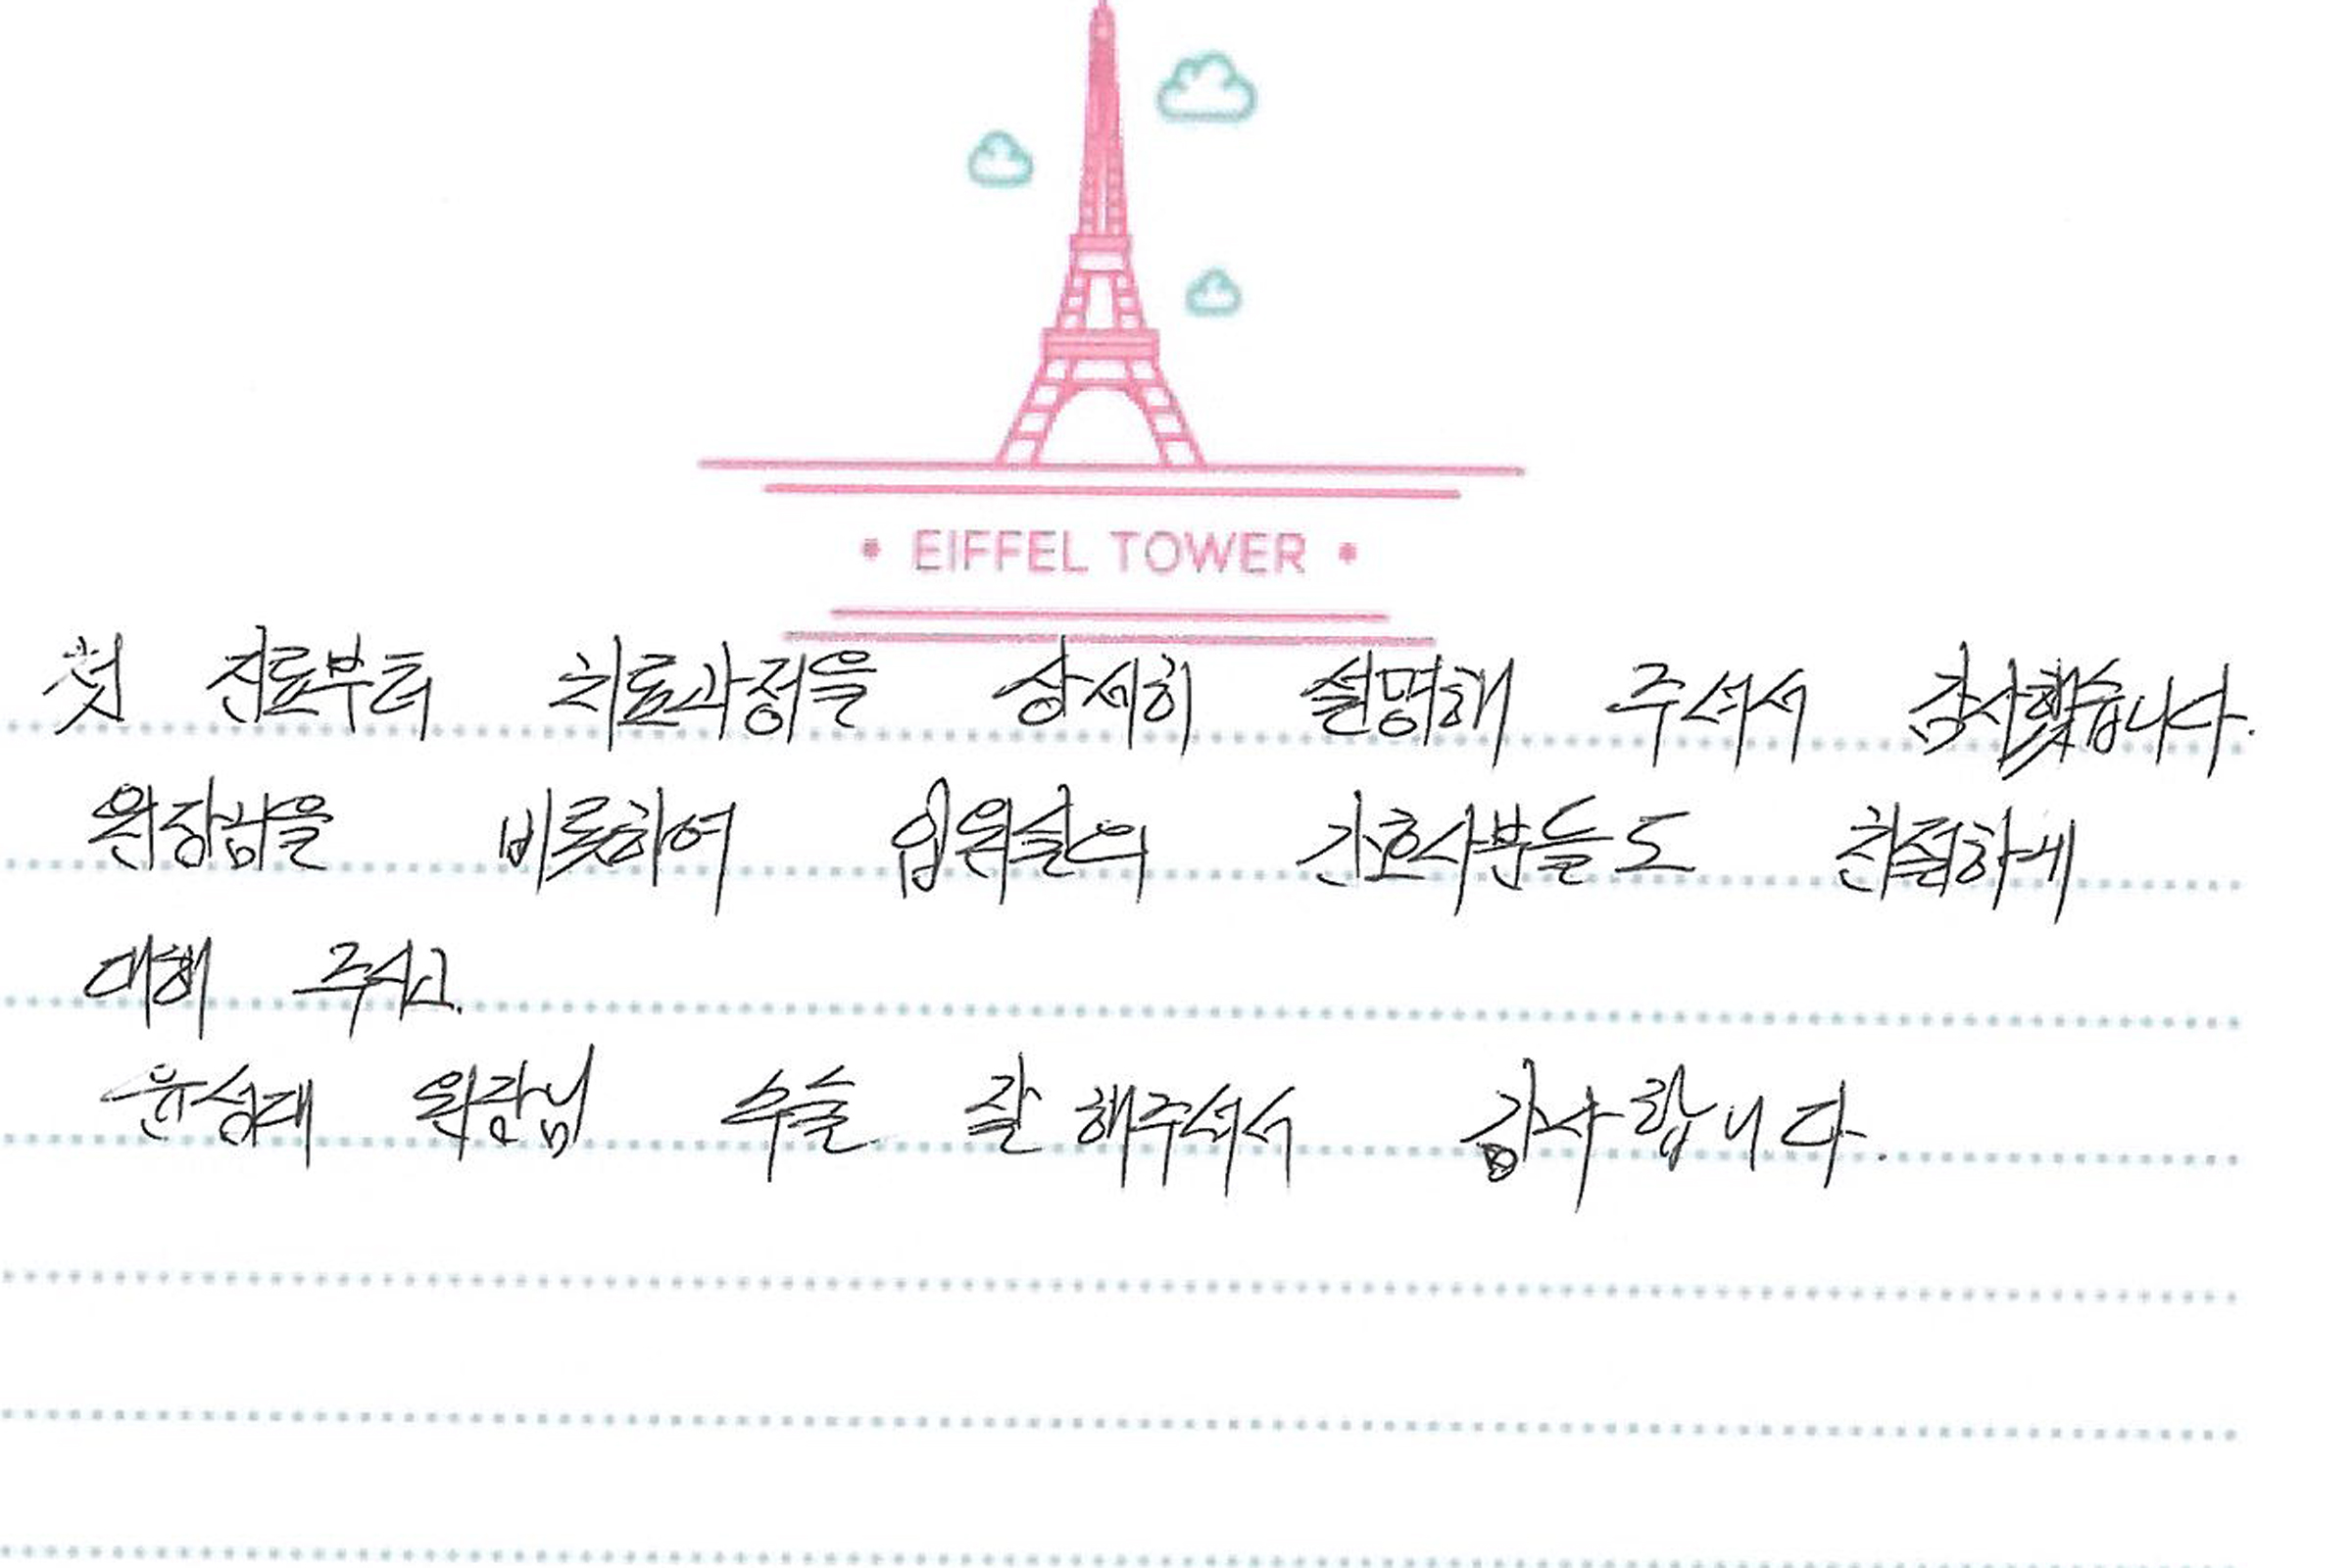 • EIFFEL TOWER •
첫 진료부터 치료과정을 상세히 설명해 주셔서 감사했습니다.
원장님을 비롯하여 입원실의 간호사분들도 친절하게
대해 주시고.
윤성대 원장님 수술 잘 해주셔서 감사합니다.